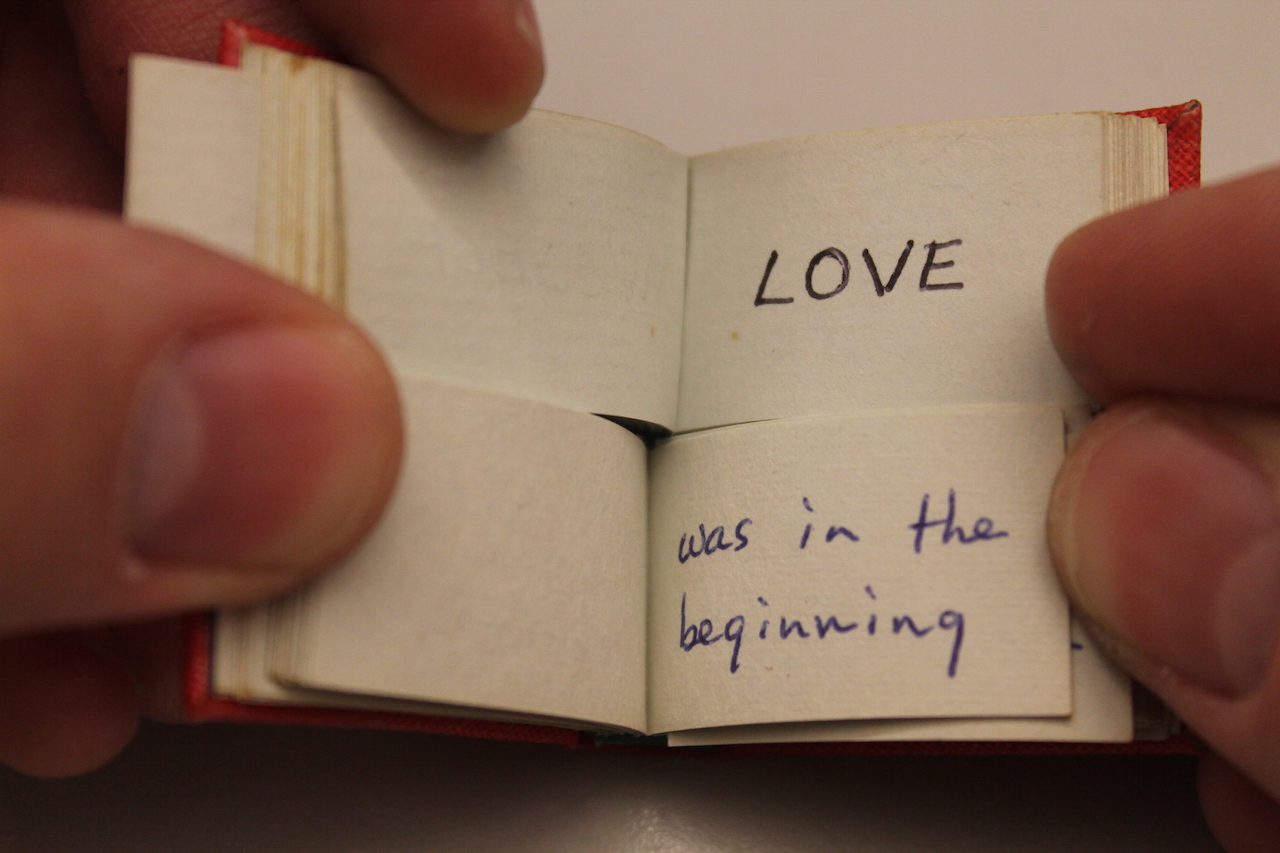 LOVE
was in the
beginning